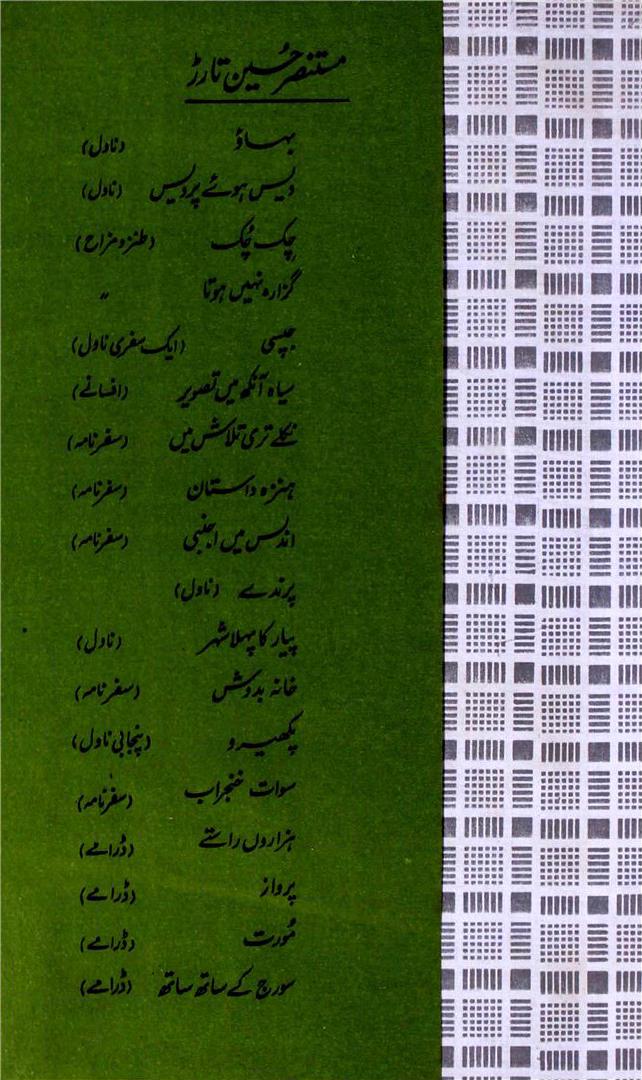 مستنصر حُسین تارڑ
بہاؤ (ناول)
دیس ہوئے پردیس (ناول)
چِک چُک (طنز و مزاح)
گزارہ نہیں ہوتا ״
جپسی (ایک سفری ناول)
سیاہ آنکھ میں تصویر (افسانے)
نکلے تری تلاش میں (سفرنامہ)
ہنزہ داستان (سفرنامہ)
اندلس میں اجنبی (سفرنامہ)
پرندے (ناول)
پیار کا پہلا شہر (ناول)
خانہ بدوش (سفرنامہ)
پکھیرو (پنجابی ناول)
سوات خنجراب (سفرنامہ)
ہزاروں راستے (ڈرامے)
پرواز (ڈرامے)
مُورت (ڈرامے)
سورج کے ساتھ ساتھ (ڈرامے)